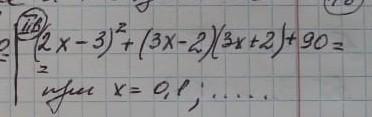 II в
(2x-3)²+(3x-2)(3x+2)+90=
при x = 0,1; .....